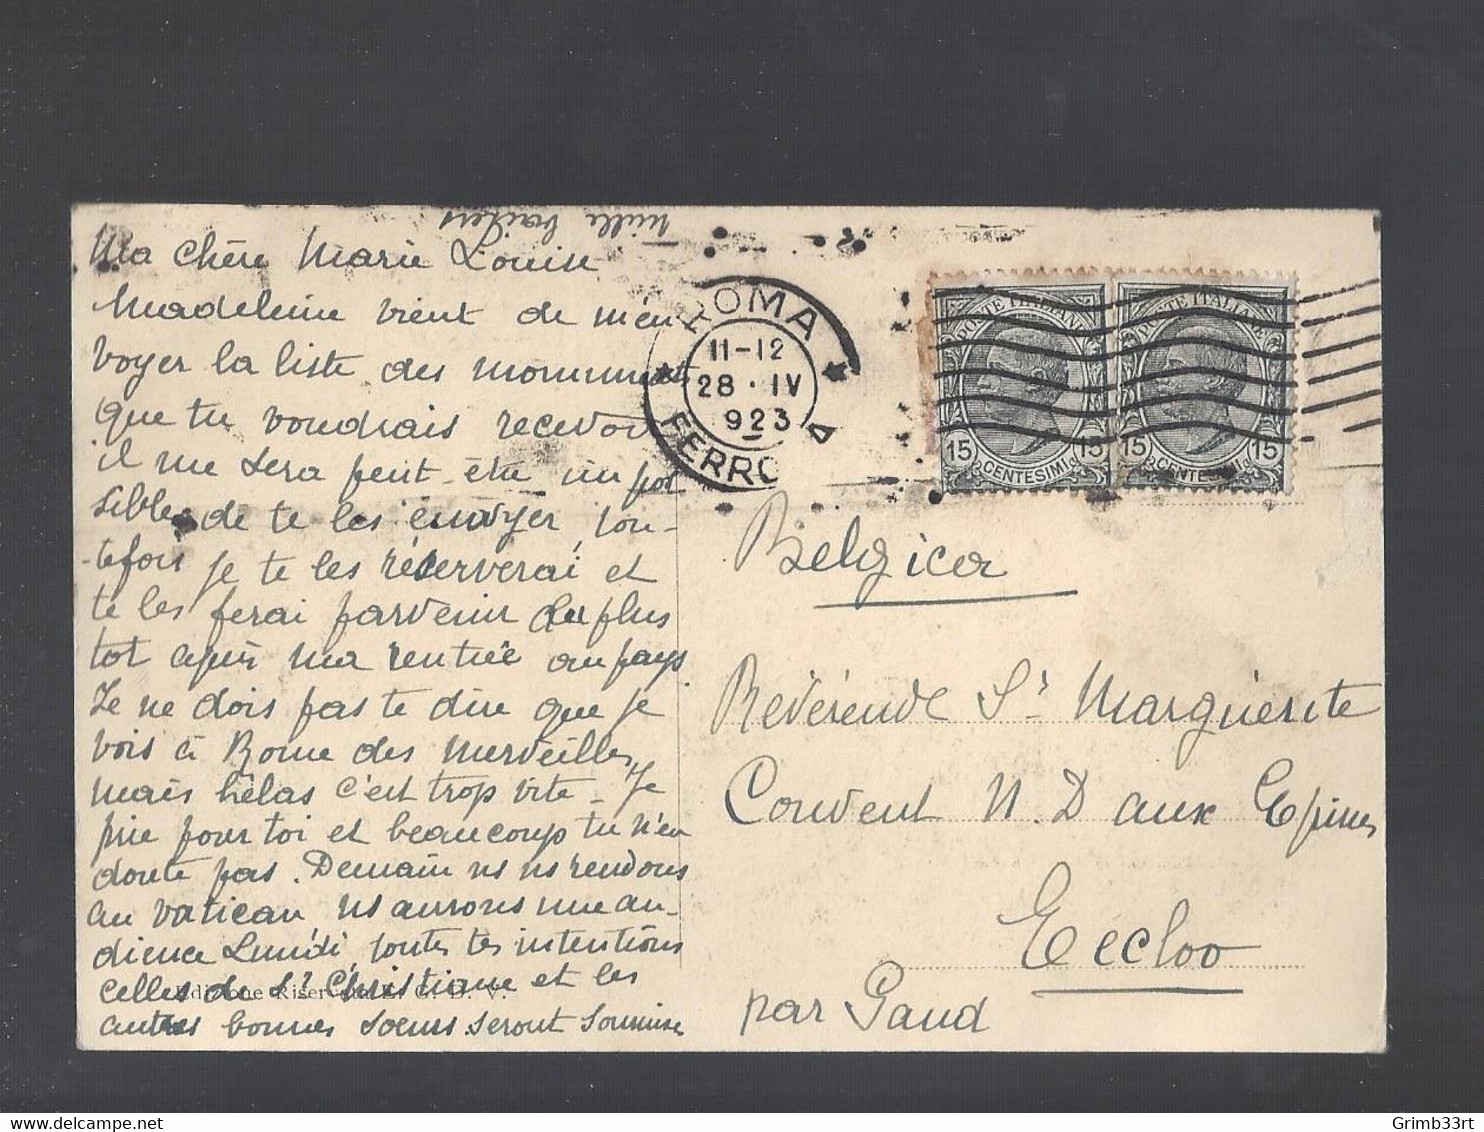 mille baisers
Ma chère Marie Louise
Madeleine vient de m'en
voyer la liste des monument
que tu voudrais recevoir
il me sera peut-être impos
sibles de te les envoyer, tou-
-tefois je te les réserverai et
te les ferai parvenir au plus
tot après ma rentrée au pays
Je ne dois pas te dire que je
vois à Rome des merveilles,
mais hélas c'est trop vite - Je
prie pour toi et beaucoup tu n'en
doute pas. Demain ns ns rendons
au Vatican, ns aurons une au-
dience Lundi, toutes tes intentions
celles de Sr Christiane et les
autres bonnes soeurs seront soumise
Edizione Riservata G. D. V.
ROMA
11-12
28 · IV
923
FERRO
POSTE ITALIANE
15 CENTESIMI 15
POSTE ITALIANE
15 CENTESIMI 15
Belgica
Révérende Sr Marguerite
Couvent N. D aux Epines
Eecloo
par Gand
delcampe.net
Grimb33rt